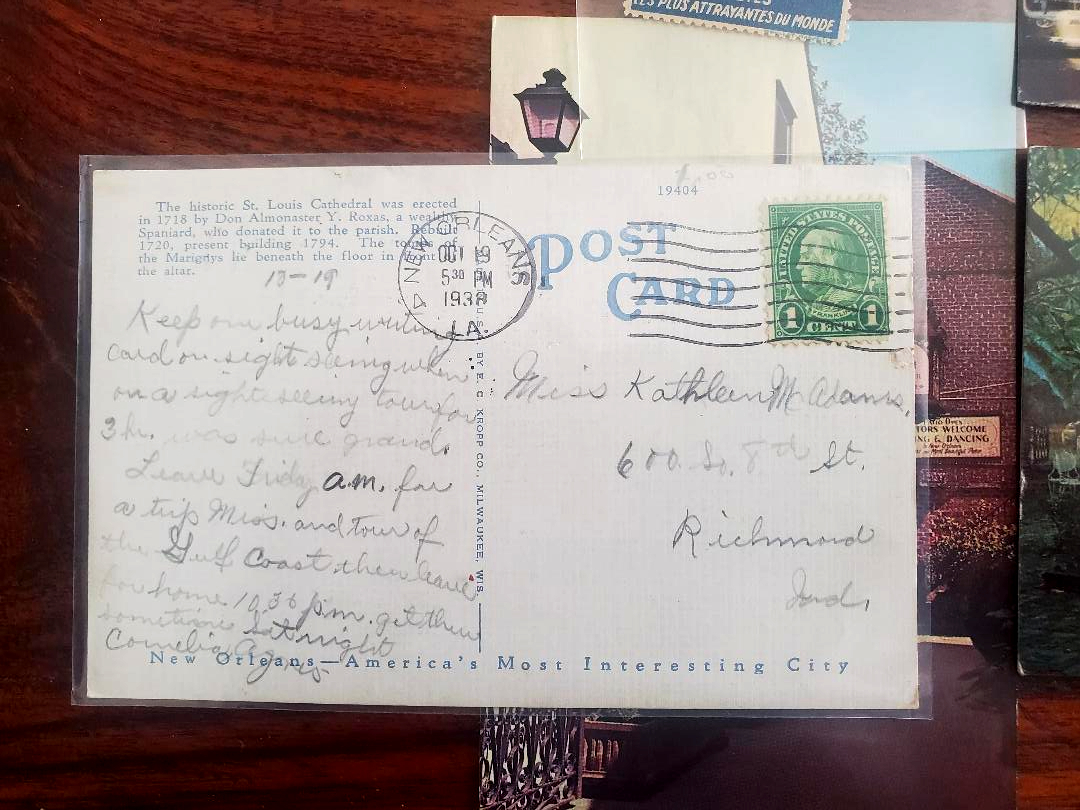 LES PLUS ATTRAYANTES DU MONDE
19404
The historic St. Louis Cathedral was erected
in 1718 by Don Almonaster Y. Roxas, a wealthy
Spaniard, who donated it to the parish. Rebuilt
1720, present building 1794. The tombs of
the Marignys lie beneath the floor in front of
the altar.
13-19
NEW ORLEANS
OCT 19
5 30 PM
1938
LA.
POST
CARD
UNITED STATES POSTAGE
FRANKLIN
1 CENT 1
Keep me busy writing
card on sight seeing when
on a sight seeing tour for
3 hr. was sure grand.
Leave Friday a.m. for
a trip Miss. and tour of
the Gulf Coast then leave
for home 10 30 p.m. get there
sometime Sat night
Cornelia
BY E. C. KROPP CO., MILWAUKEE, WIS.
Miss Kathleen McAdams,
600 So. 8th St.
Richmond
Ind.
New Orleans—America's Most Interesting City
TORS WELCOME
NG & DANCING